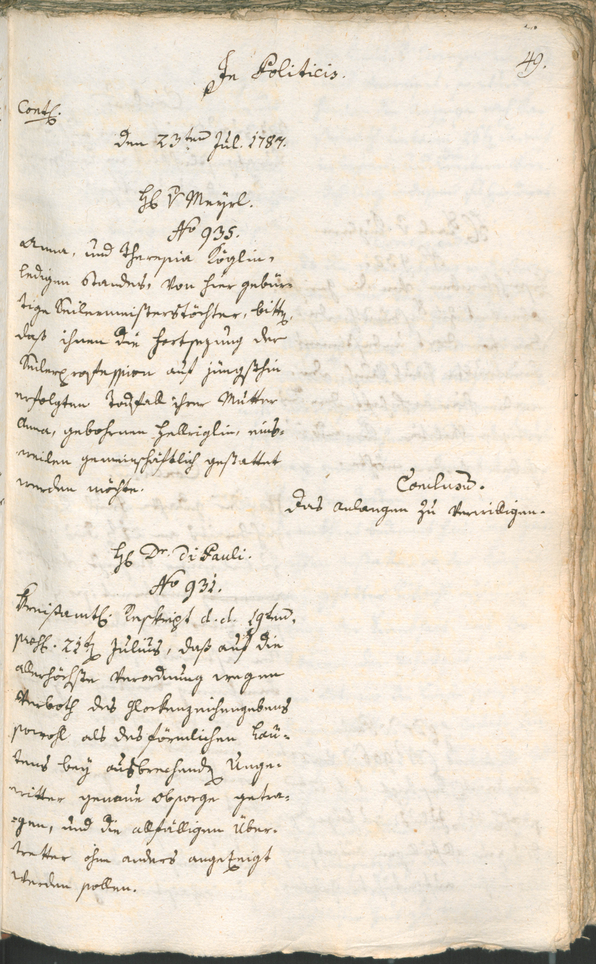 49.
In Politicis.
den 23ten Jul. 1787.
H. v Meyrl.
No 935.
Anna, und Theresia Köglin,
ledigen Standes, von hier gebür-
tige Seilermeisterstöchter, bitten,
daß ihnen die Fortsezung der
Seilerprofession auf jüngsthin
erfolgten Todfall ihrer Mutter
Anna, gebohrnen Hellriglin, eins-
weilen gemeinschäftlich gestattet
werden möchte.
Conclusum.
Das Anlangen zu verwilligen.
H. Dr. Di Pauli.
No 931.
Kreisamtl. Reskript d. d. 19ten,
praes. 21ten Julius, daß auf die
allerhöchste Verordnung wegen
Verboth des Glockenzeichengebens
sowohl als des förmlichen Läu-
tens bey ausbrechenden Unge-
witter genaue Obsorge getra-
gen, und die allfälligen Über-
tretter ohne anders angezeigt
werden sollen.